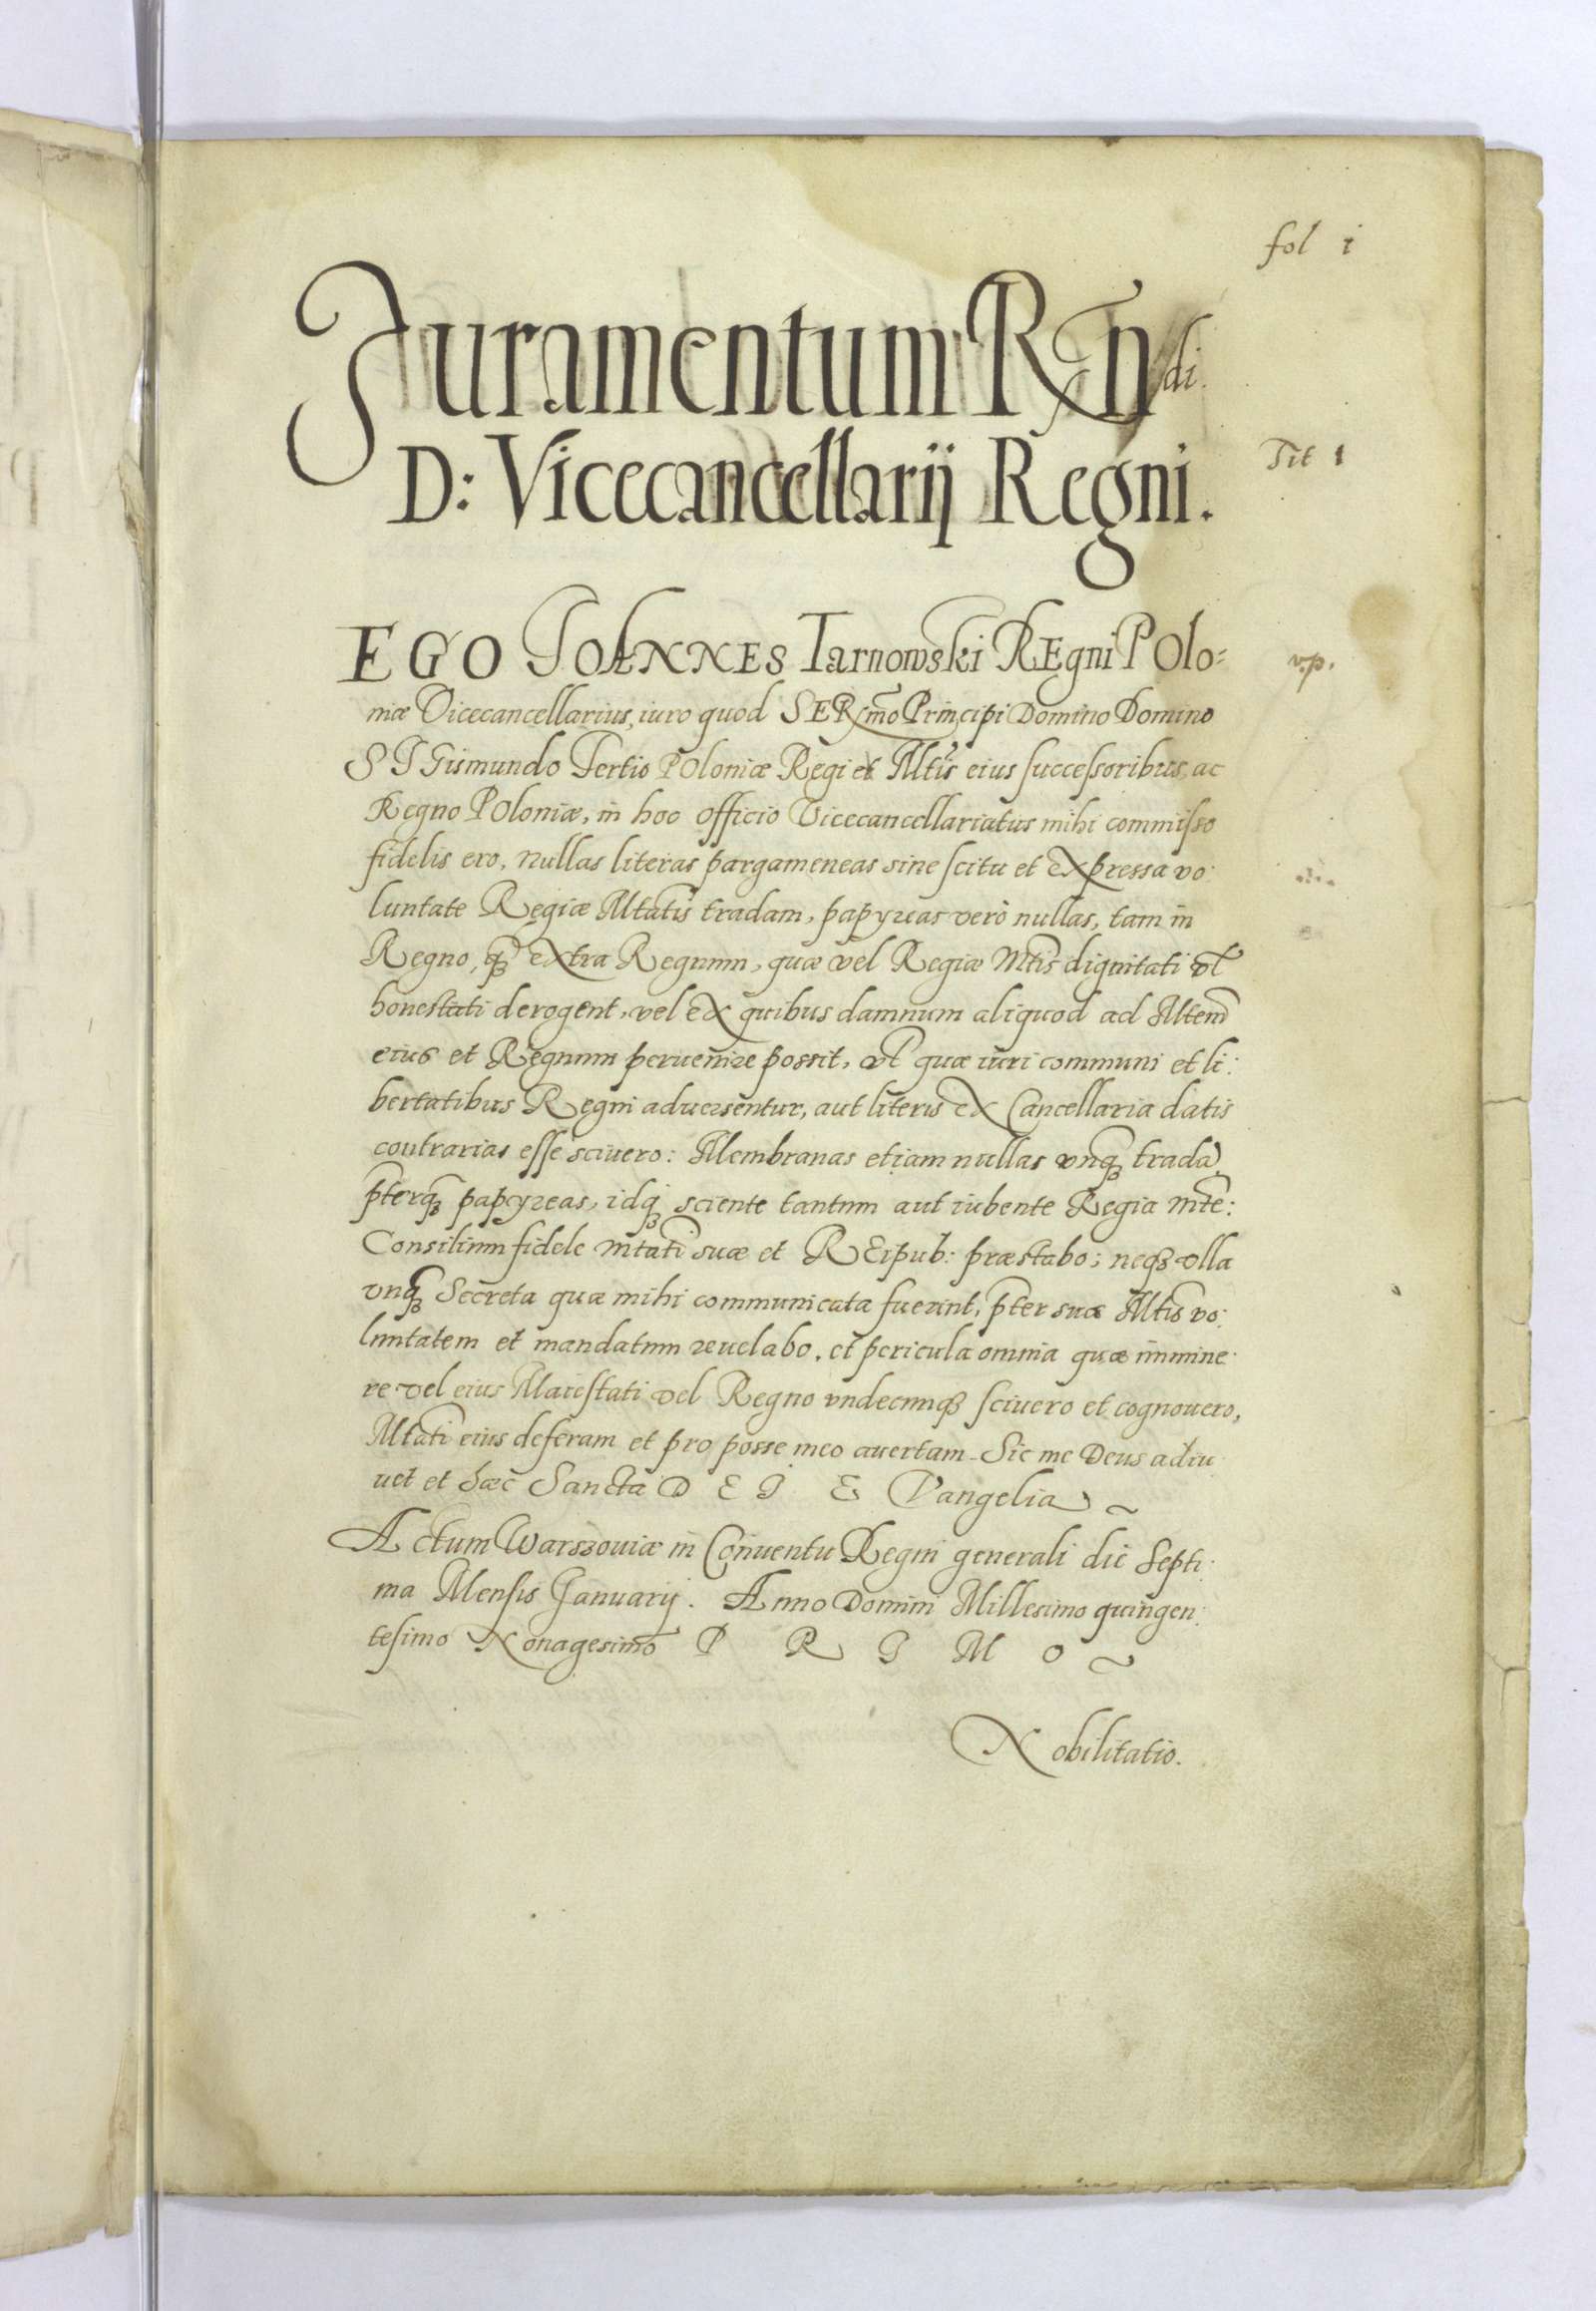 fol i
Juramentum Rndi.
D: Vicecancellarij Regni.
Tit 1
EGO JOANNES Tarnowski REgni POlo=
v.p.
niæ Vicecancellarius, iuro quod SERmo Principi Domino Domino
SIGismundo Tertio POloniæ Regi et Mtis eius successoribus, ac
Regno POloniæ, in hoc officio Vicecancellariatus mihi commisso
fidelis ero, nullas literas pargameneas sine scitu et expressa vo:
luntate Regiæ Mtatis tradam, papyreas verò nullas, tam in
Regno, q̃ꝫ extra Regnum, quæ vel Regiæ Mtis dignitati vl̃
honestati derogent, vel ex quibus damnum aliquod ad Mtem
eius et Regnum peruenire possit, vl̃ quæ iuri communi et li:
bertatibus Regni aduersentur, aut literis ex Cancellaria datis
contrarias esse sciuero: Membranas etiam nullas vnq̃ꝫ tradã
p̃terq̃ꝫ papyreas, idqꝫ sciente tantum aut iubente Regia Mte:
Consilium fidele Mtati suæ et REipub: præstabo; neqꝫ vlla
vnq̃ꝫ Secreta quæ mihi communicata fuerint, p̃ter suæ Mtis vo:
luntatem et mandatum reuelabo, et pericula omnia quæ immine:
re vel eius Maiestati vel Regno vndecunqꝫ sciuero et cognouero,
Mtati eius deferam et pro posse meo auertam. Sic me Deus adiu
uet et hæc Sancta D E I E Vangelia
Actum Warszouiæ in Conuentu Regni generali die Septi:
ma Mensis Januarij. Anno Domini Millesimo quingen:
tesimo Nonagesimo P R I M O
Nobilitatio.